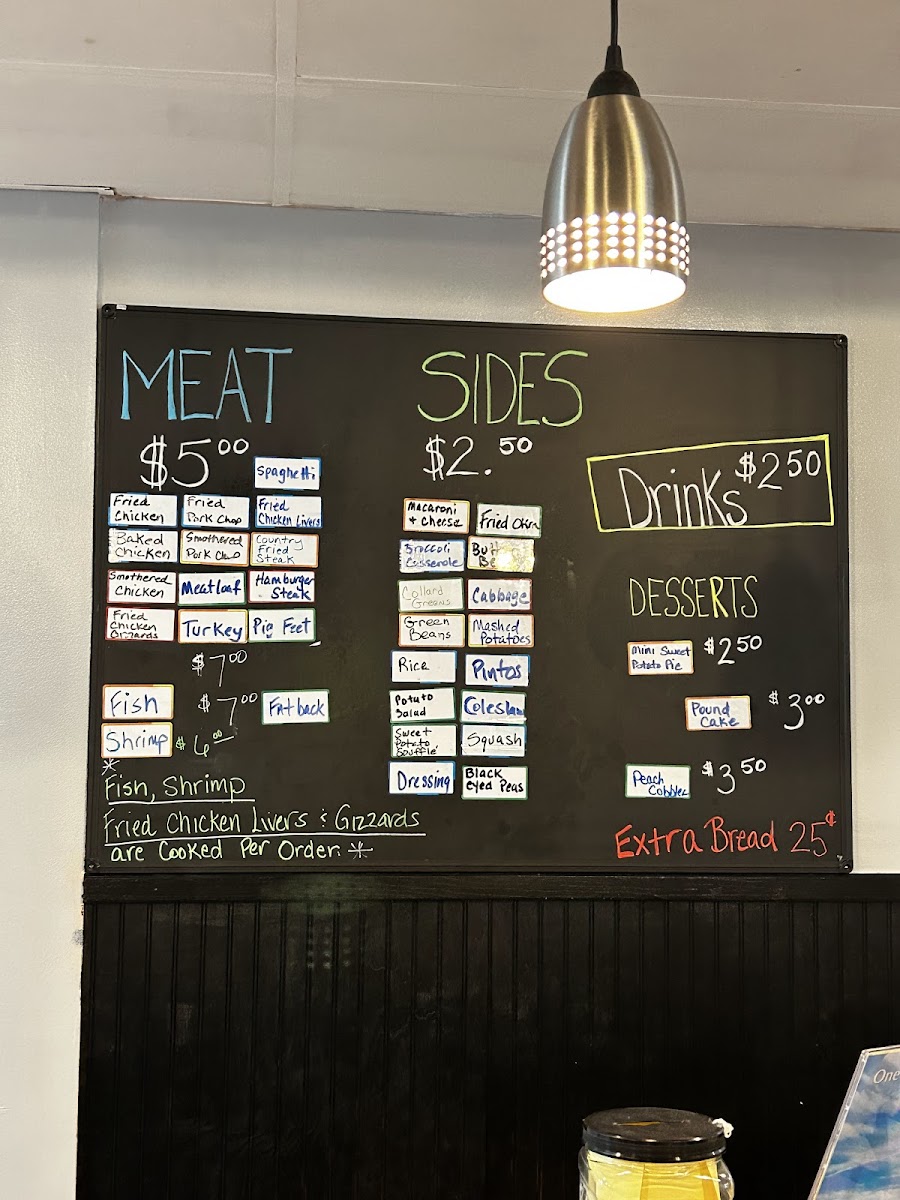 MEAT
$5.00
Spaghetti
Fried Chicken
Fried Pork Chop
Fried Chicken Livers
Baked Chicken
Smothered Pork Chop
Country Fried Steak
Smothered Chicken
Meatloaf
Hamburger Steak
Fried Chicken Gizzards
Turkey
Pig Feet
$7.00
Fish
$7.00
Fatback
Shrimp
$6.00
*
Fish, Shrimp
Fried Chicken Livers & Gizzards
are Cooked Per Order. *
SIDES
$2.50
Macaroni + Cheese
Fried Okra
Broccoli Casserole
Collard Greens
Cabbage
Green Beans
Mashed Potatoes
Rice
Pintos
Potato Salad
Coleslaw
Sweet Potato Souffle'
Squash
Dressing
Black eyed Peas
Drinks $2.50
DESSERTS
Mini Sweet Potato Pie
$2.50
Pound Cake
$3.00
Peach Cobbler
$3.50
Extra Bread 25¢
One